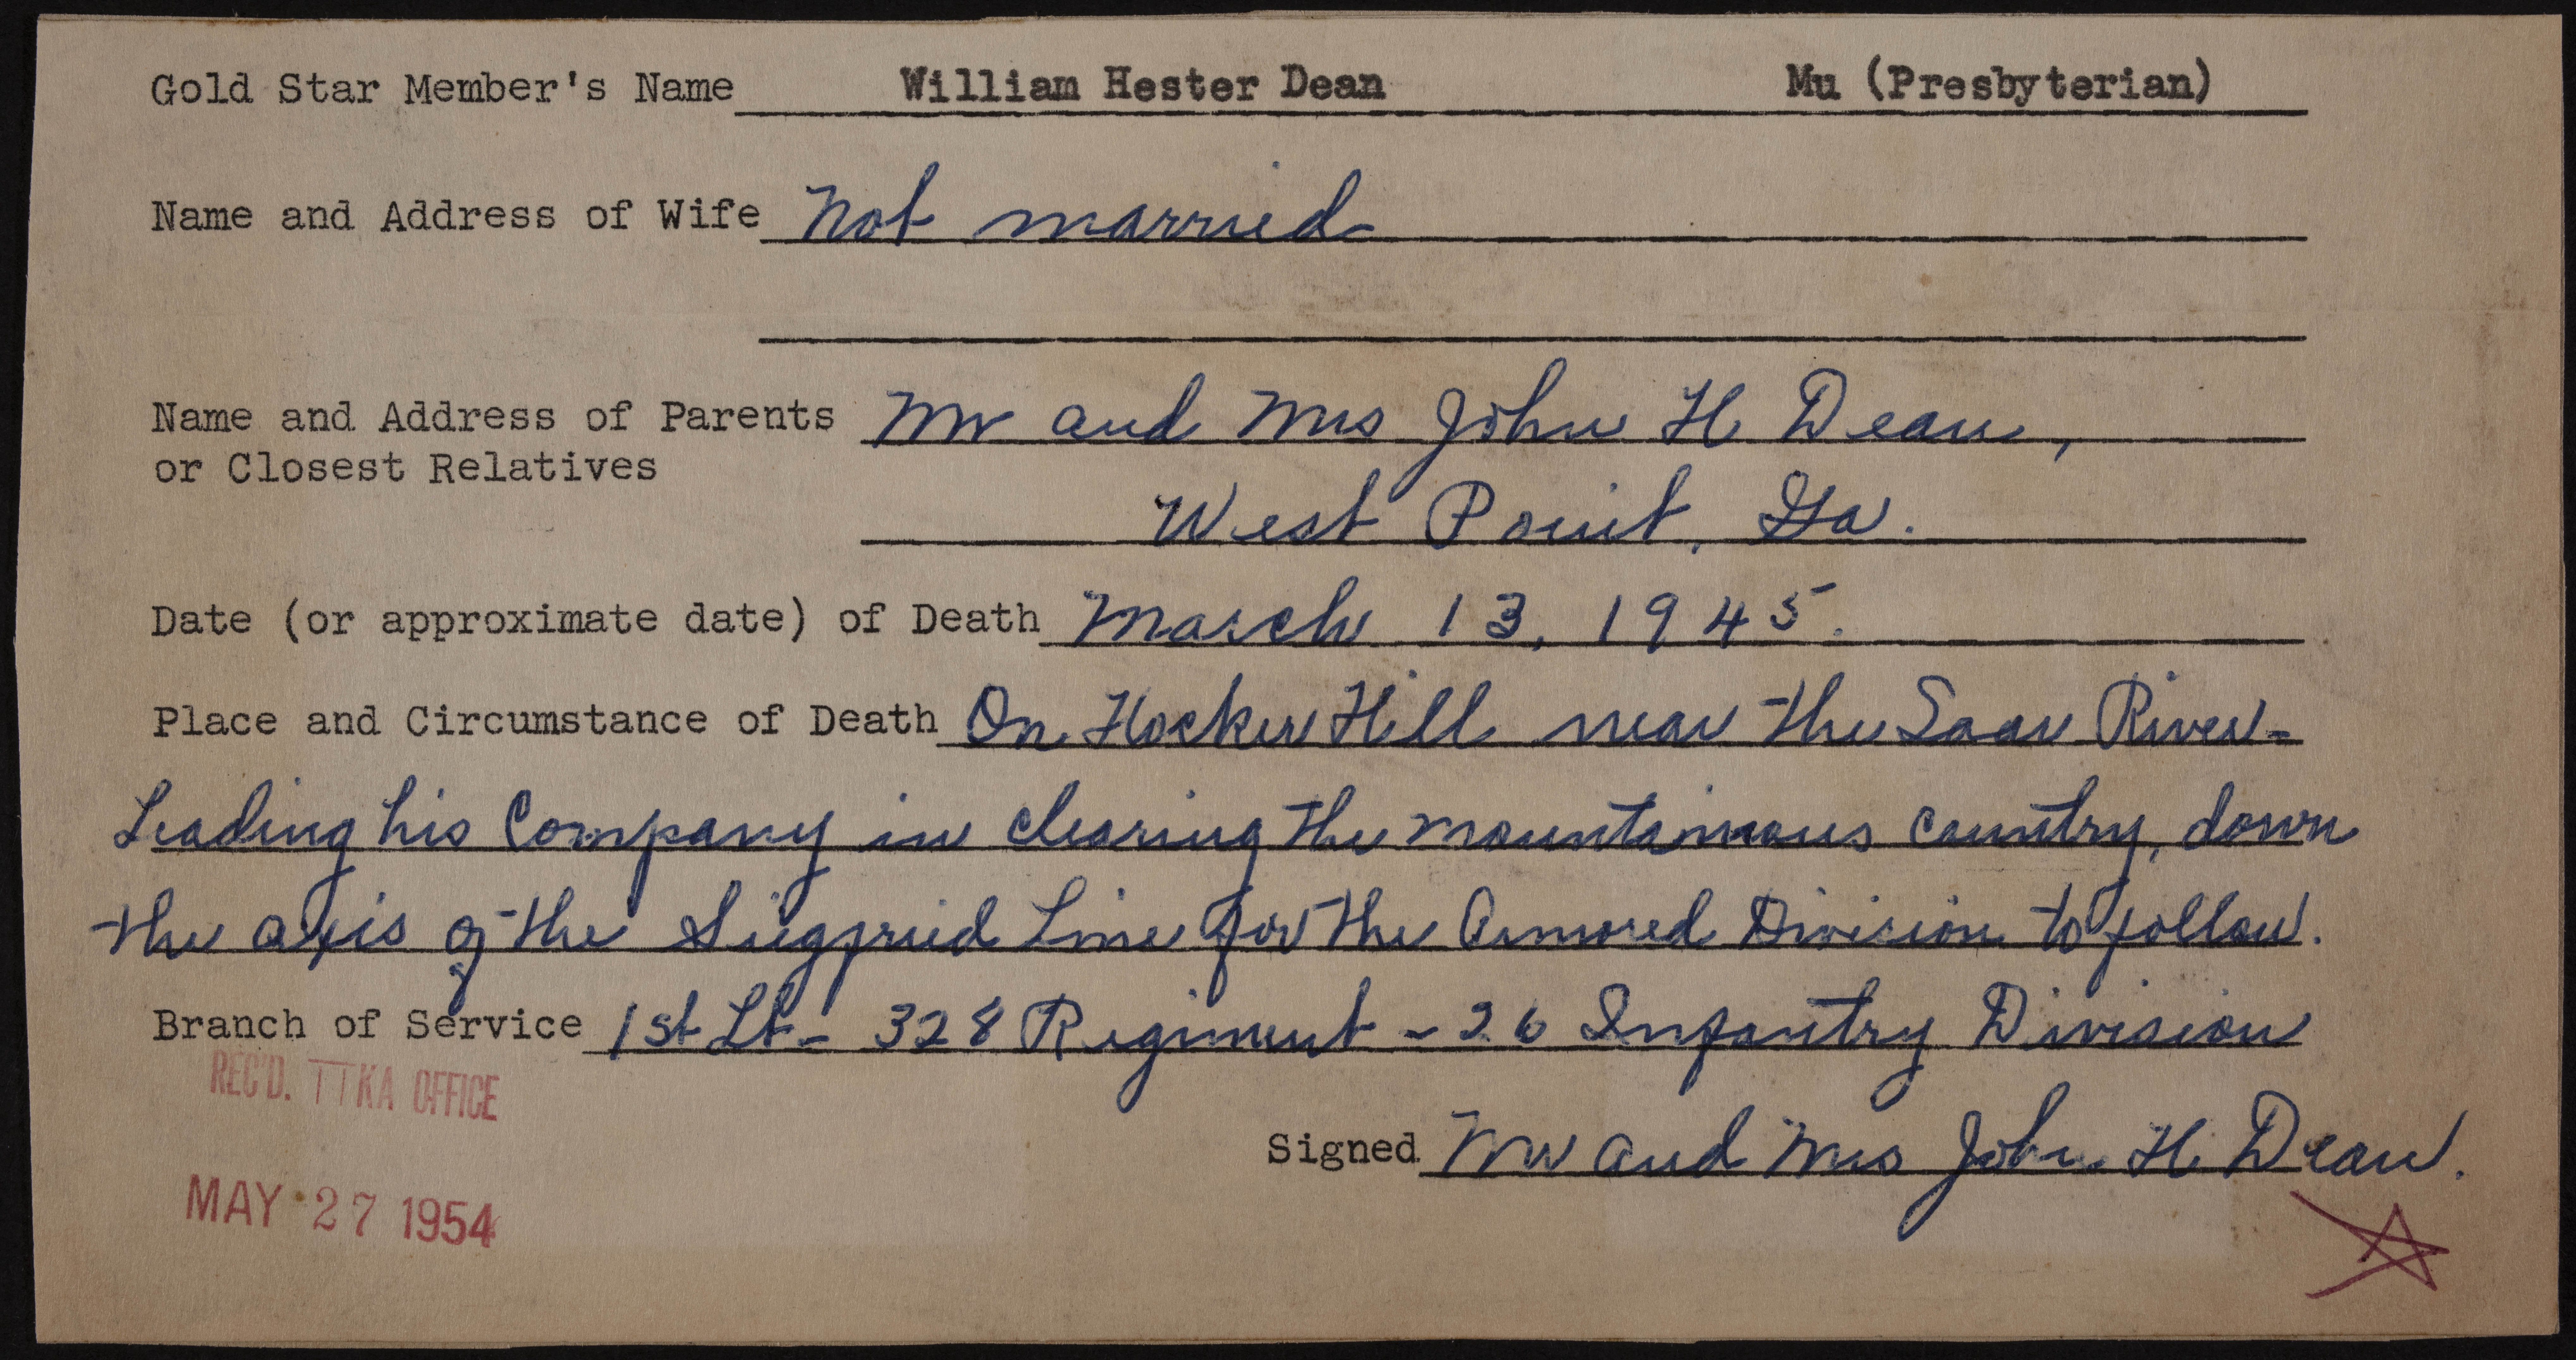 Gold Star Member's Name William Hester Dean Mu (Presbyterian)
Name and Address of Wife Not married
Name and Address of Parents Mr and Mrs John H Dean,
or Closest Relatives
West Point, Ga.
Date (or approximate date) of Death March 13, 1945.
Place and Circumstance of Death On Hocker Hill near the Saar River-
Leading his Company in clearing the mountainous country, down
the axis of the Siegfried Line for the Armored Division to follow.
Branch of Service 1st Lt- 328 Regiment - 26 Infantry Division
REC'D. TTKA OFFICE
Signed Mr and Mrs John H. Dean.
MAY 27 1954